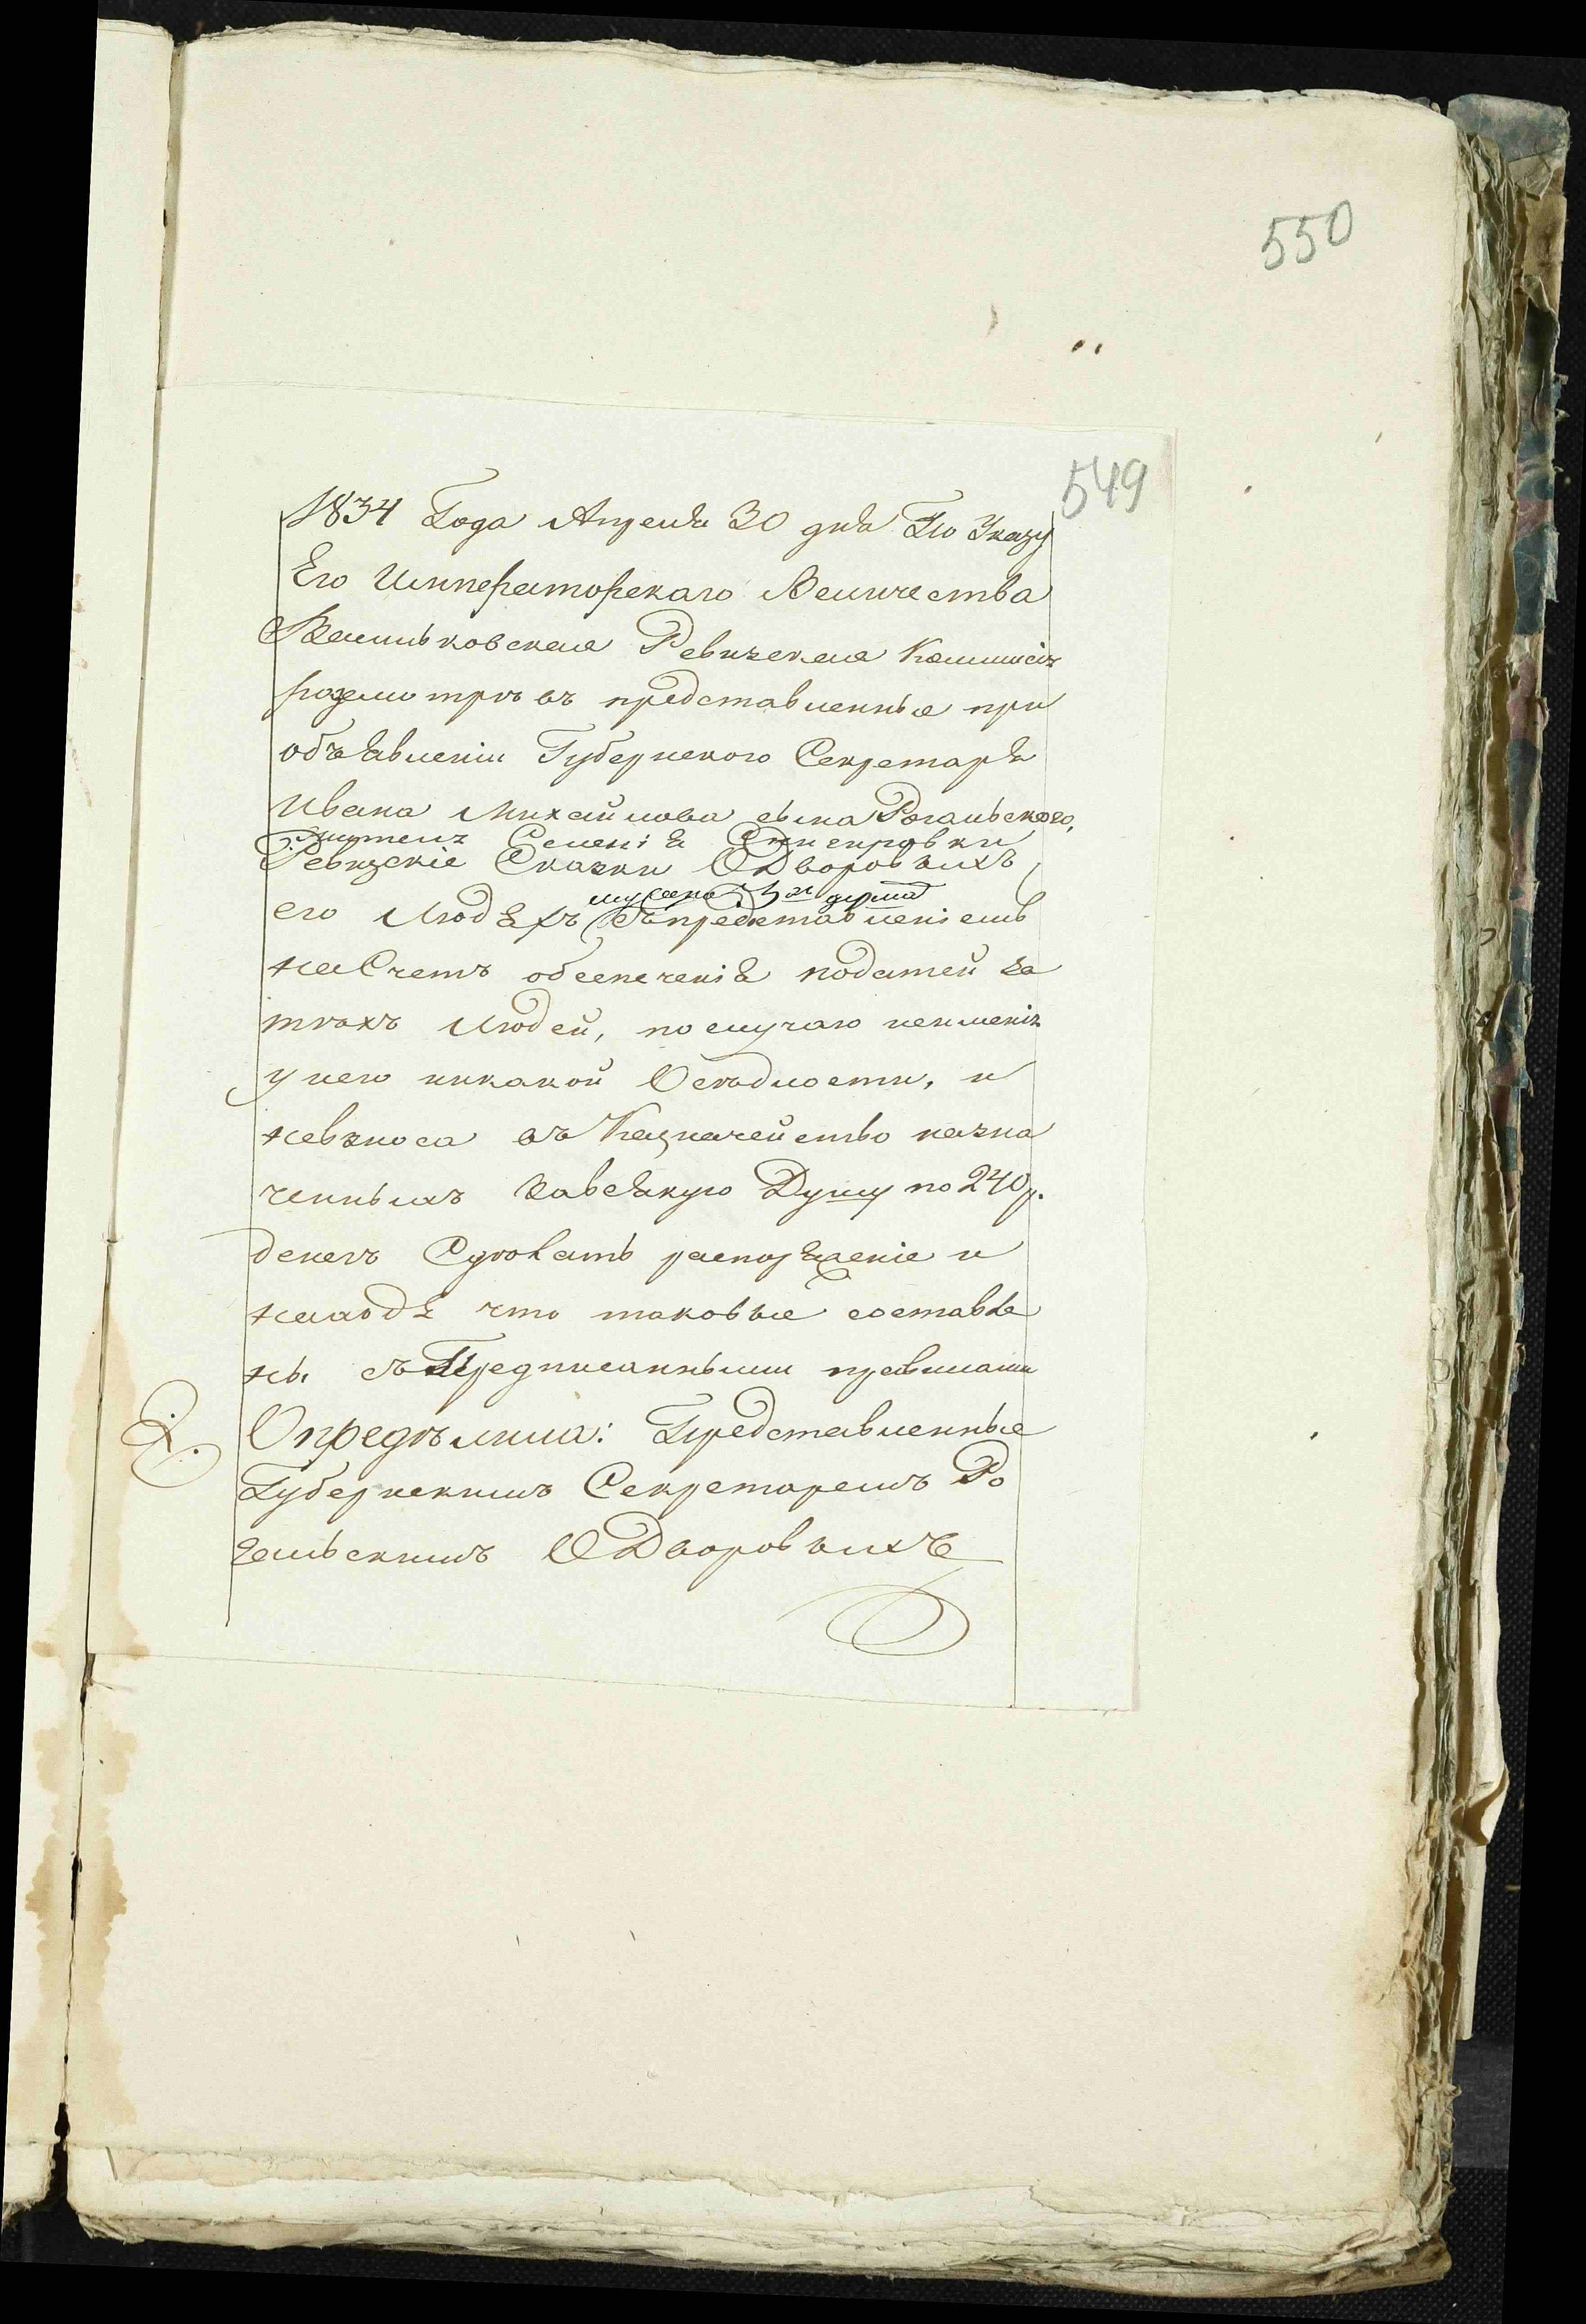 550
549
1834 Года Апреля 30 дня По Указу
Его Императорскаго Величества
Васильковская Ревизская Коммисія
розсмотревъ представленные при
объявленіи Губернского Секретаря
Ивана Михайлова сына Рогальского,
жителя Селенія
Ревизскіе Сказки О Дворовыхъ
его Людяхъ съ представленіемъ
на Счетъ обеспеченія податей за
техъ Людей, по случаю неименія
у него никакой Оседлости, и
невзноса въ Казначейство назна
ченныхъ за всякую Душу по 240 р.
денегъ Сделать распоряженіе и
находя что таковые составле
ны съ Предписанными правилами
Определила: Представленные
Губернскимъ Секретаремъ Ро
гальскимъ О Дворовыхъ